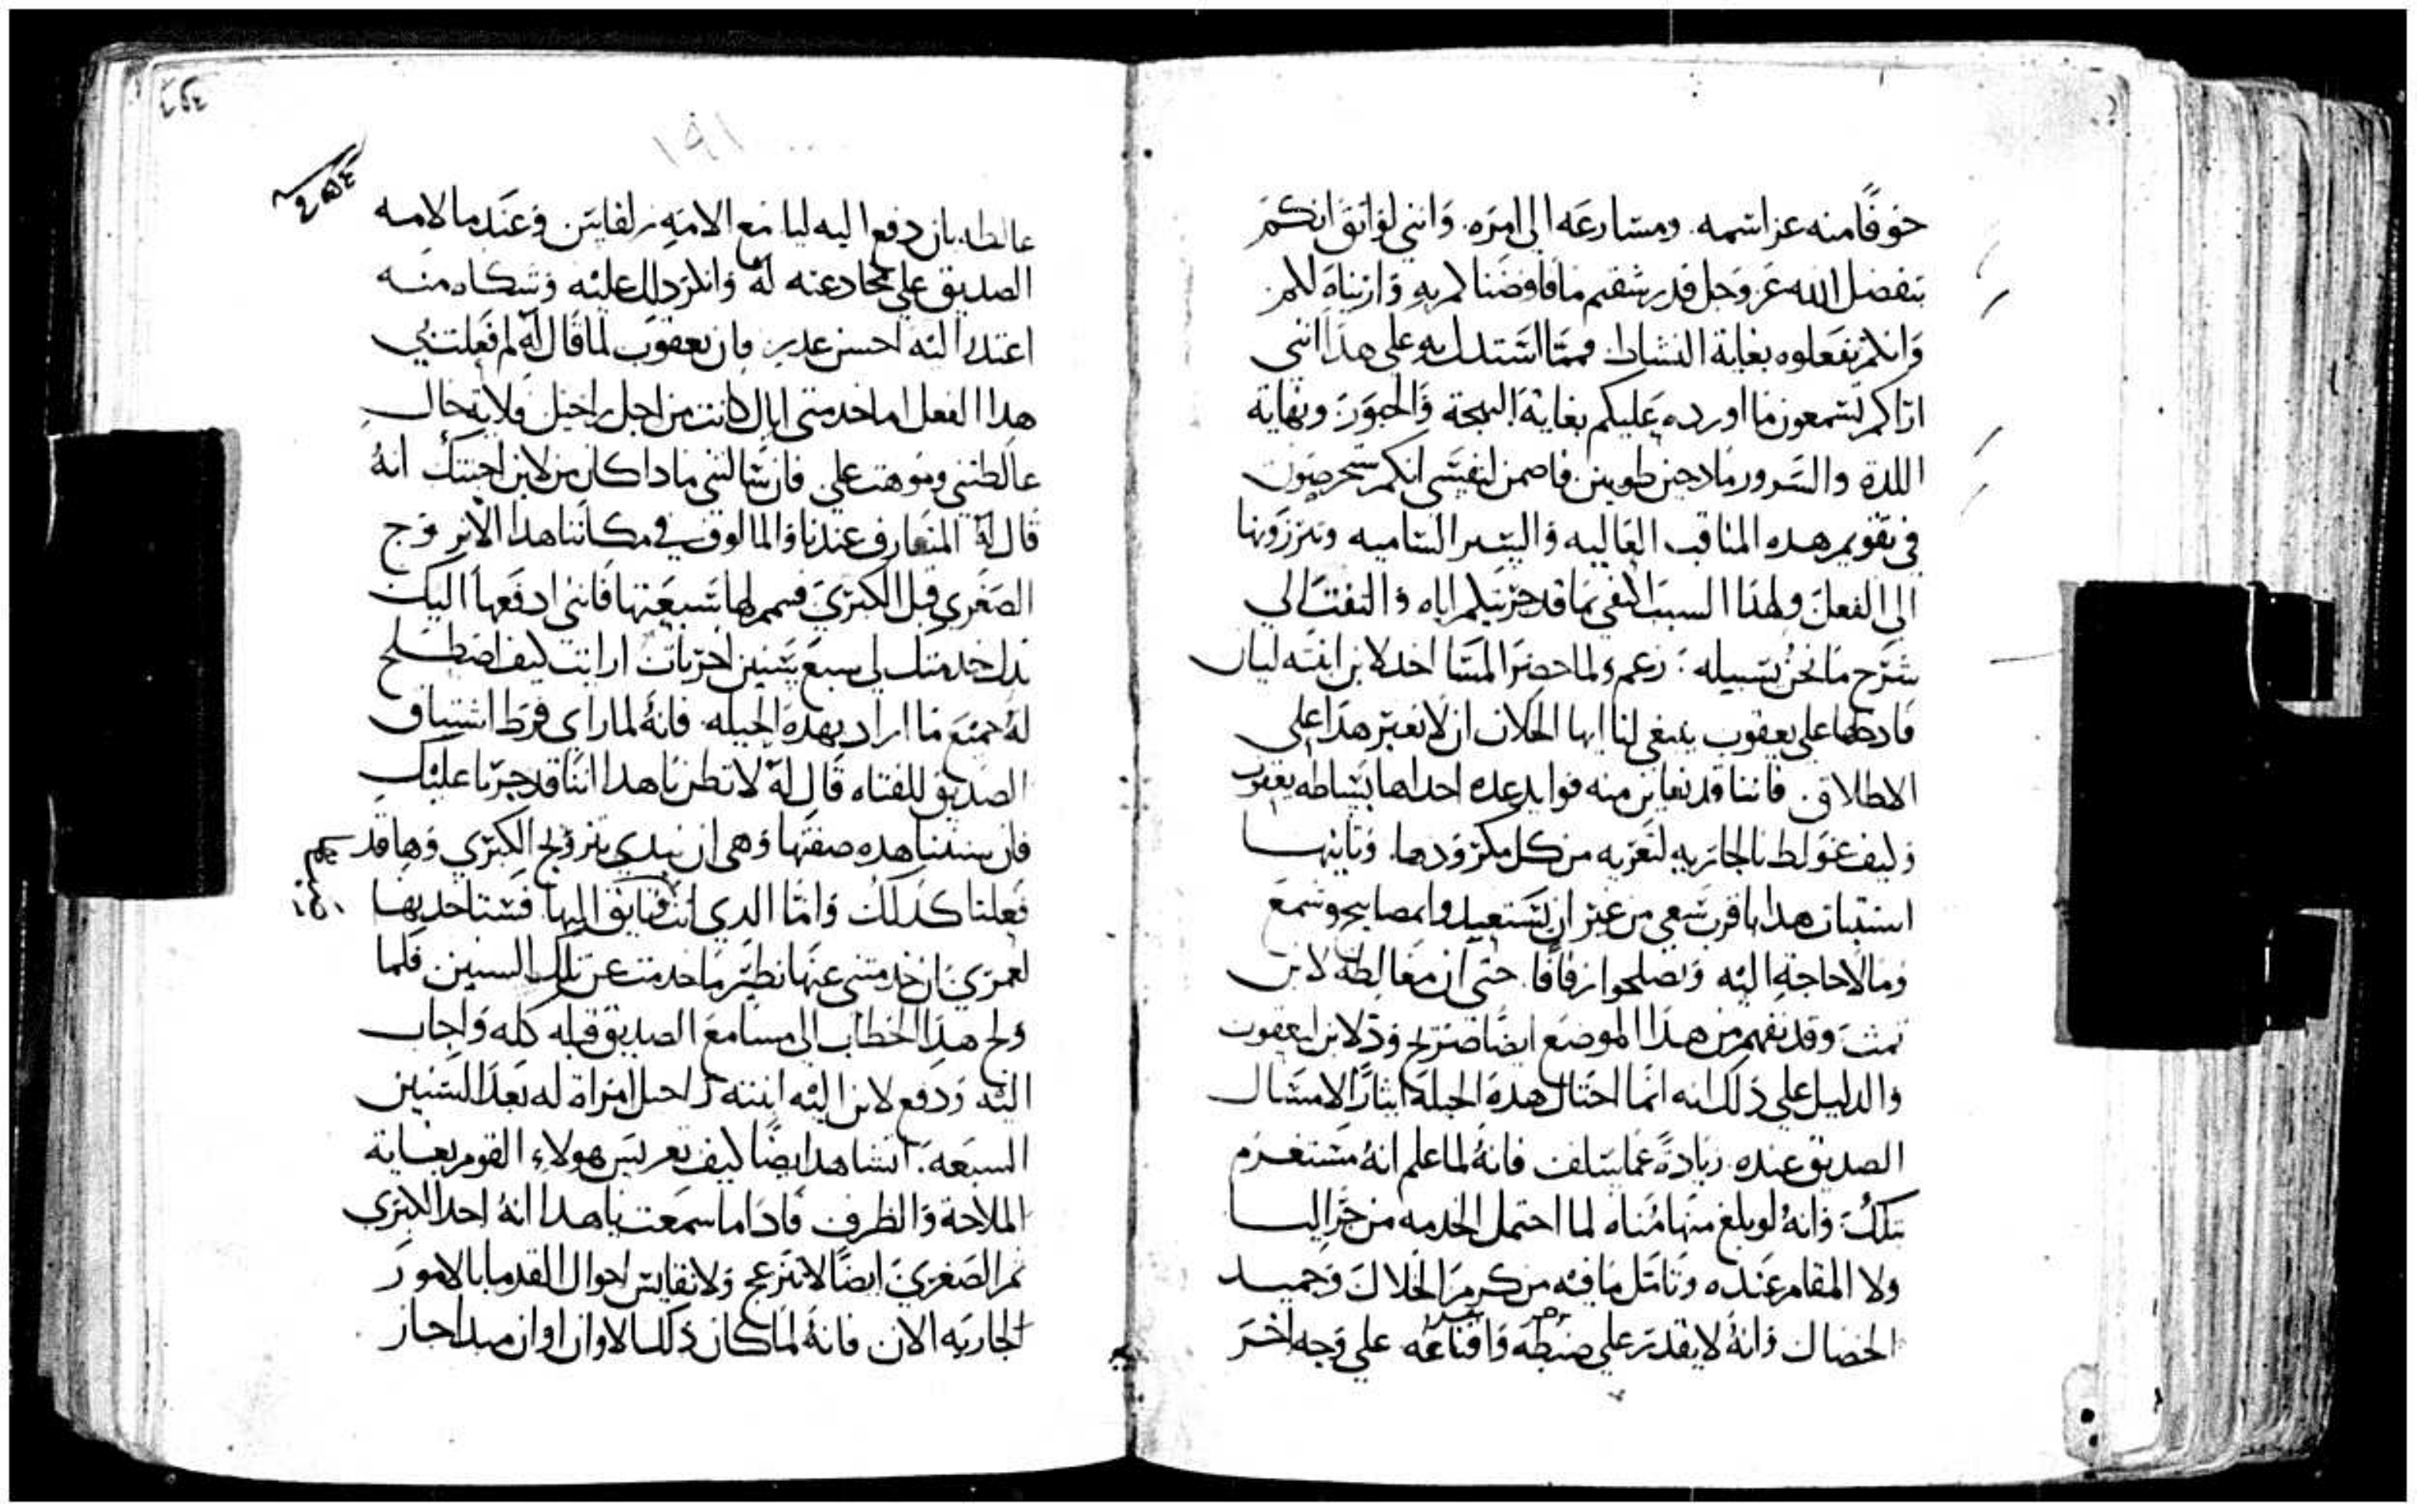 خوفًا منه عز اسمه. ومسارعه الى امره. وانني لواثق انكم
بتفضل الله عز وجل قد رشفتم ما فاوضنا كم به وازيناه لكم.
وانكم تفعلوه بغاية النشاط. فمما استدل به على هذا انني
اراكم تسمعون ما اورده عليكم بغاية البهجة والحبور ونهاية
اللدة والسرور مادحين طوبين. فاضمن لنفسي انكم ستحرصون
في تقويم هده المناقب العاليه والسير الساميه وتبرزونها
الى الفعل ولهذا السبب اكتفي بما قد خبرتكم اياه والتفت الى
شرح ما نحن بسبيله: زعم ولما حضر المسا اخد لابن ابنته ليان
فادخلها على يعقوب ينبغي لنا ايها الخلان ان لا نعبر هذا على
الاطلاق. فاننا قد نعاين منه فوايد عده احداها بساطه يعقوب
وكيف غولط بالجاريه لتعريه من كل مكر ودها. وثانيها
استبيان هدا باقرب سعي من غير ان تستعمل مصابيح وشمع
وما لا حاجة اليه وتصلحوا زفافا. حتى ان مغالطة لابن
تمت وقد نفهم من هدا الموضع ايضا صريح ود لابن ليعقوب
والدليل على ذلك انه انما احتال هده الحيلة ايثارًا لامتثال
الصديق عنده. زيادة عما سلف فانه لما علم انه مستغرم
بتلك وانه لو بلغ منها مناه لما احتمل الخدمه من جرا ليا
ولا المقام عنده وتامل ما فيه من كرم الخلال وحميد
الخصال وانه لا يقدر على ضبطه واقناعه على وجه اخر
غالطه بان دفع اليه ليا مع الامه زلفا وعندما لامه
الصديق على مخادعته له وانكر ذلك عليه وشكاه منه
اعتدر اليه احسن عدر. فان يعقوب لما قال له لم فعلت بي
هدا الفعل اما خدمتي اياك كانت من اجل راحيل فلاية حال
غالطتني وموهت علي. فان سالتني مادا كان من لابن اجبتك انه
قال له المتعارف عندنا والمالوف في مكاننا هدا الا نزوج
الصغرى قبل الكبرى فتمم لها سبعتها فانني ادفعها اليك
بدل خدمتك لي سبع سنين اخريات ارايت كيف اصطلح
له جميع ما اراد بهده الحيله. فانه لما راى فرط اشتياق
الصديق للفتاه قال له لا تظن يا هدا اننا قد جرنا عليك
فان سنتنا هده صفتها وهي ان نبدي بتزويج الكبرى وها قد
فعلنا كذلك واما الدي انت تايق اليها فستاخديها
لعمري ان خدمتني عنها نظير ما خدمت عن تلك السنين فلما
ولج هذا الخطاب الى مسامع الصديق قبله كله واجاب
اليه ودفع لابن اليه ابنته راحيل امراة له بعد السنين
السبعه. اتشاهد ايضا كيف تعريس هولاء القوم بغاية
الملاحة والظرف فادا ما سمعت يا هدا انه اخد الكبرى
ثم الصغرى ايضا لا تنزعج ولا تقايس احوال القدما بالامور
الجاريه الان فانه لما كان ذلك الاوان اوان مبدا جاز